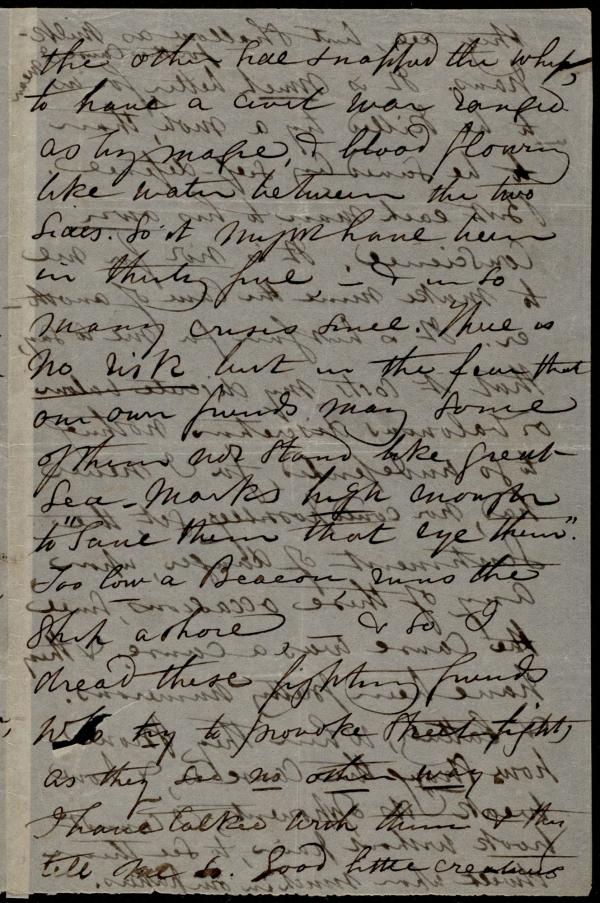 the other side snapped the whip,
to have a civil war ranged
as by magic, & blood flowing
like water between the two
sides. So it might have been
in thirty five - & in so
many crisis since. There is
no risk but in the fear that
our own friends may some
of them not stand like great
sea-marks high enough
to "Save them that eye them".
Too low a Beacon, runs the
Ship ashore & so I
dread these fighting friends
who try to provoke street fights,
as they see no other way
I have talked with them & they
tell me so. Good little creatures